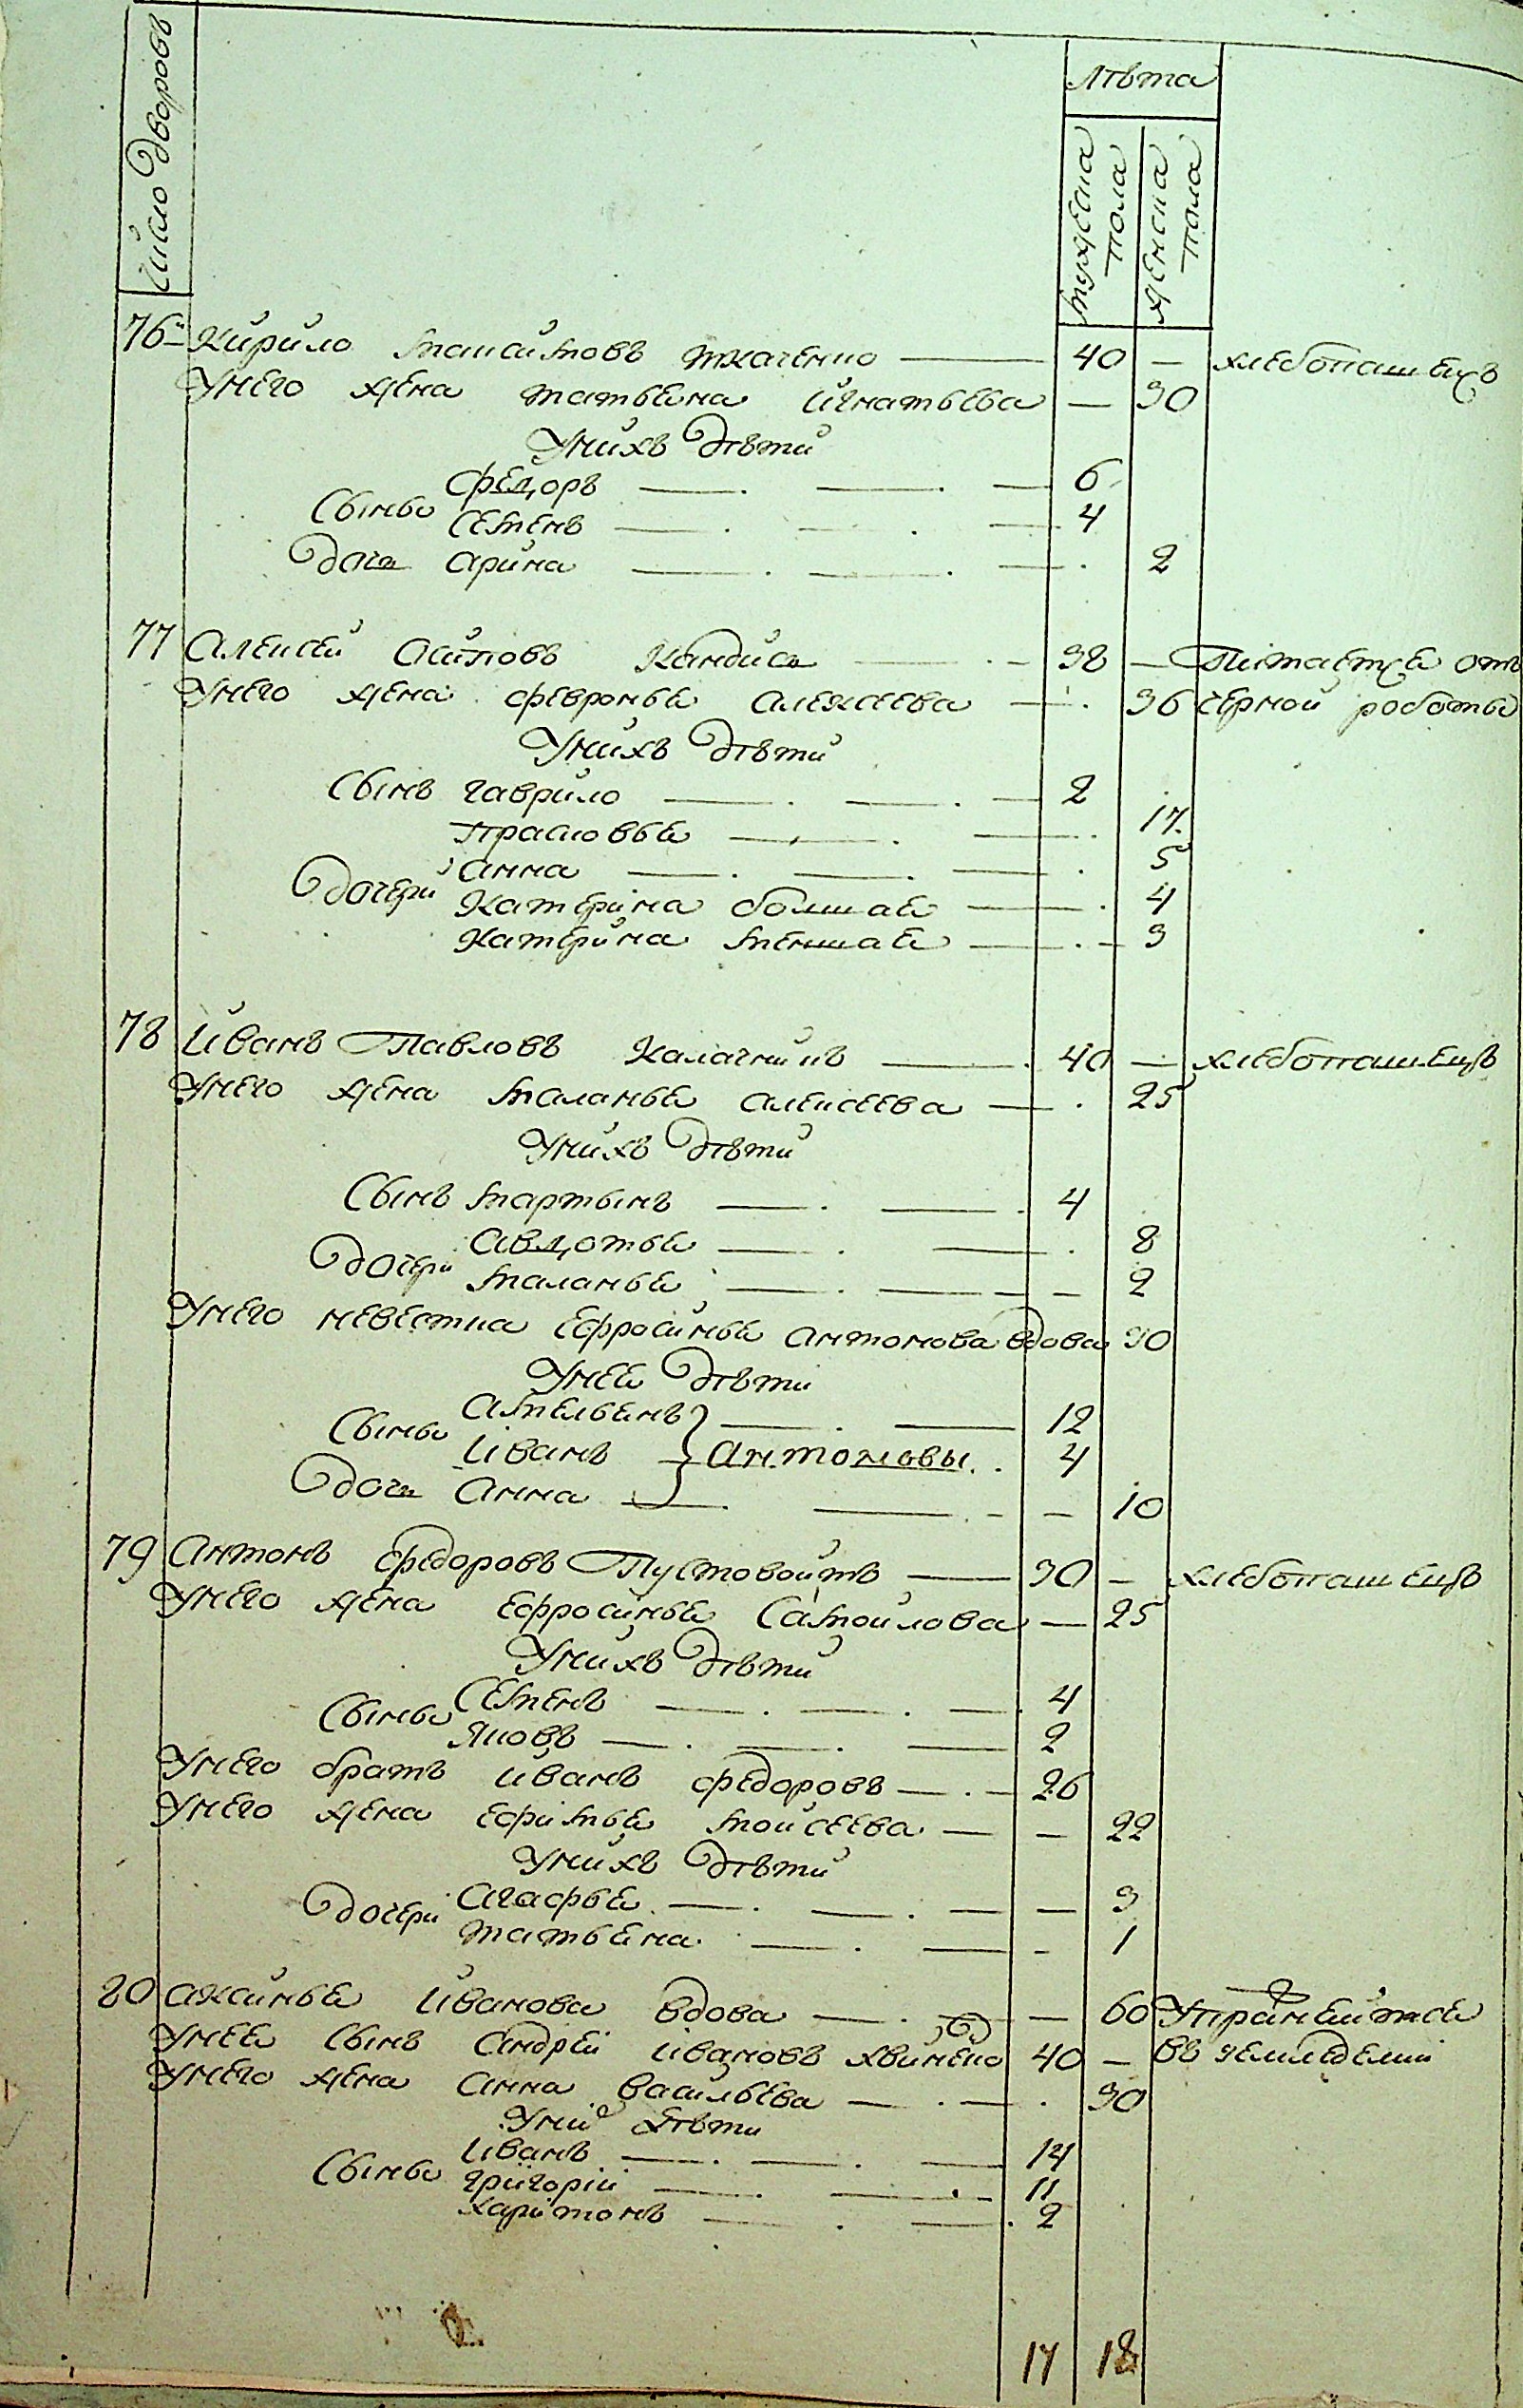 Число дворовъ
Лѣта
мужеска пола
женска пола
76й Кирило Максимовъ Ткаченко — 40 — хлебопашецъ
Унего жена Татьяна Игнатьева — 30
Унихъ дѣти
Сыны Федоръ — 6
Семенъ — 4
Дочь Арина — 2
77 Алексей Осиповъ Кандиба — 38 — Питаетця отъ
Унего жена Февронья Алексеева — 36 чёрной роботы
Унихъ дѣти
Сынъ Гаврило — 2
Прасковья — 17
Дочери Анна — 5
Катерина болшая — 4
Катерина меншая — 3
78 Иванъ Павловъ Калачникъ — 40 — хлебопашецъ
Унего жена Маланья Алексеева — 25
Унихъ дѣти
Сынъ Мартынъ — 4
Дочери Авдотья — 8
Маланья — 2
Унего невестка Ефросинья Антонова вдова 30
Унея дѣти
Сыны Амельянъ — 12
Иванъ Антоновы 4
Дочь Анна — 10
79 Антонъ Федоровъ Пустовойтъ — 30 — хлебопашецъ
Унего жена Ефросинья Самойлова — 25
Унихъ дѣти
Сыны Семенъ — 4
Яковъ — 2
Унего братъ Иванъ Федоровъ — 26
Унего жена Ефимья Мойсеева — 22
Унихъ дѣти
Дочери Агафья — 3
Татьяна — 1
80 Аксинья Иванова вдова — 60 Упражняйтся
Унея сынъ Андрей Ивановъ 40 — въ земледелии
Унего жена Анна Васильева — 30
Уних дѣти
Сыны Иванъ — 14
Григорий — 11
Харитонъ — 2
17 18